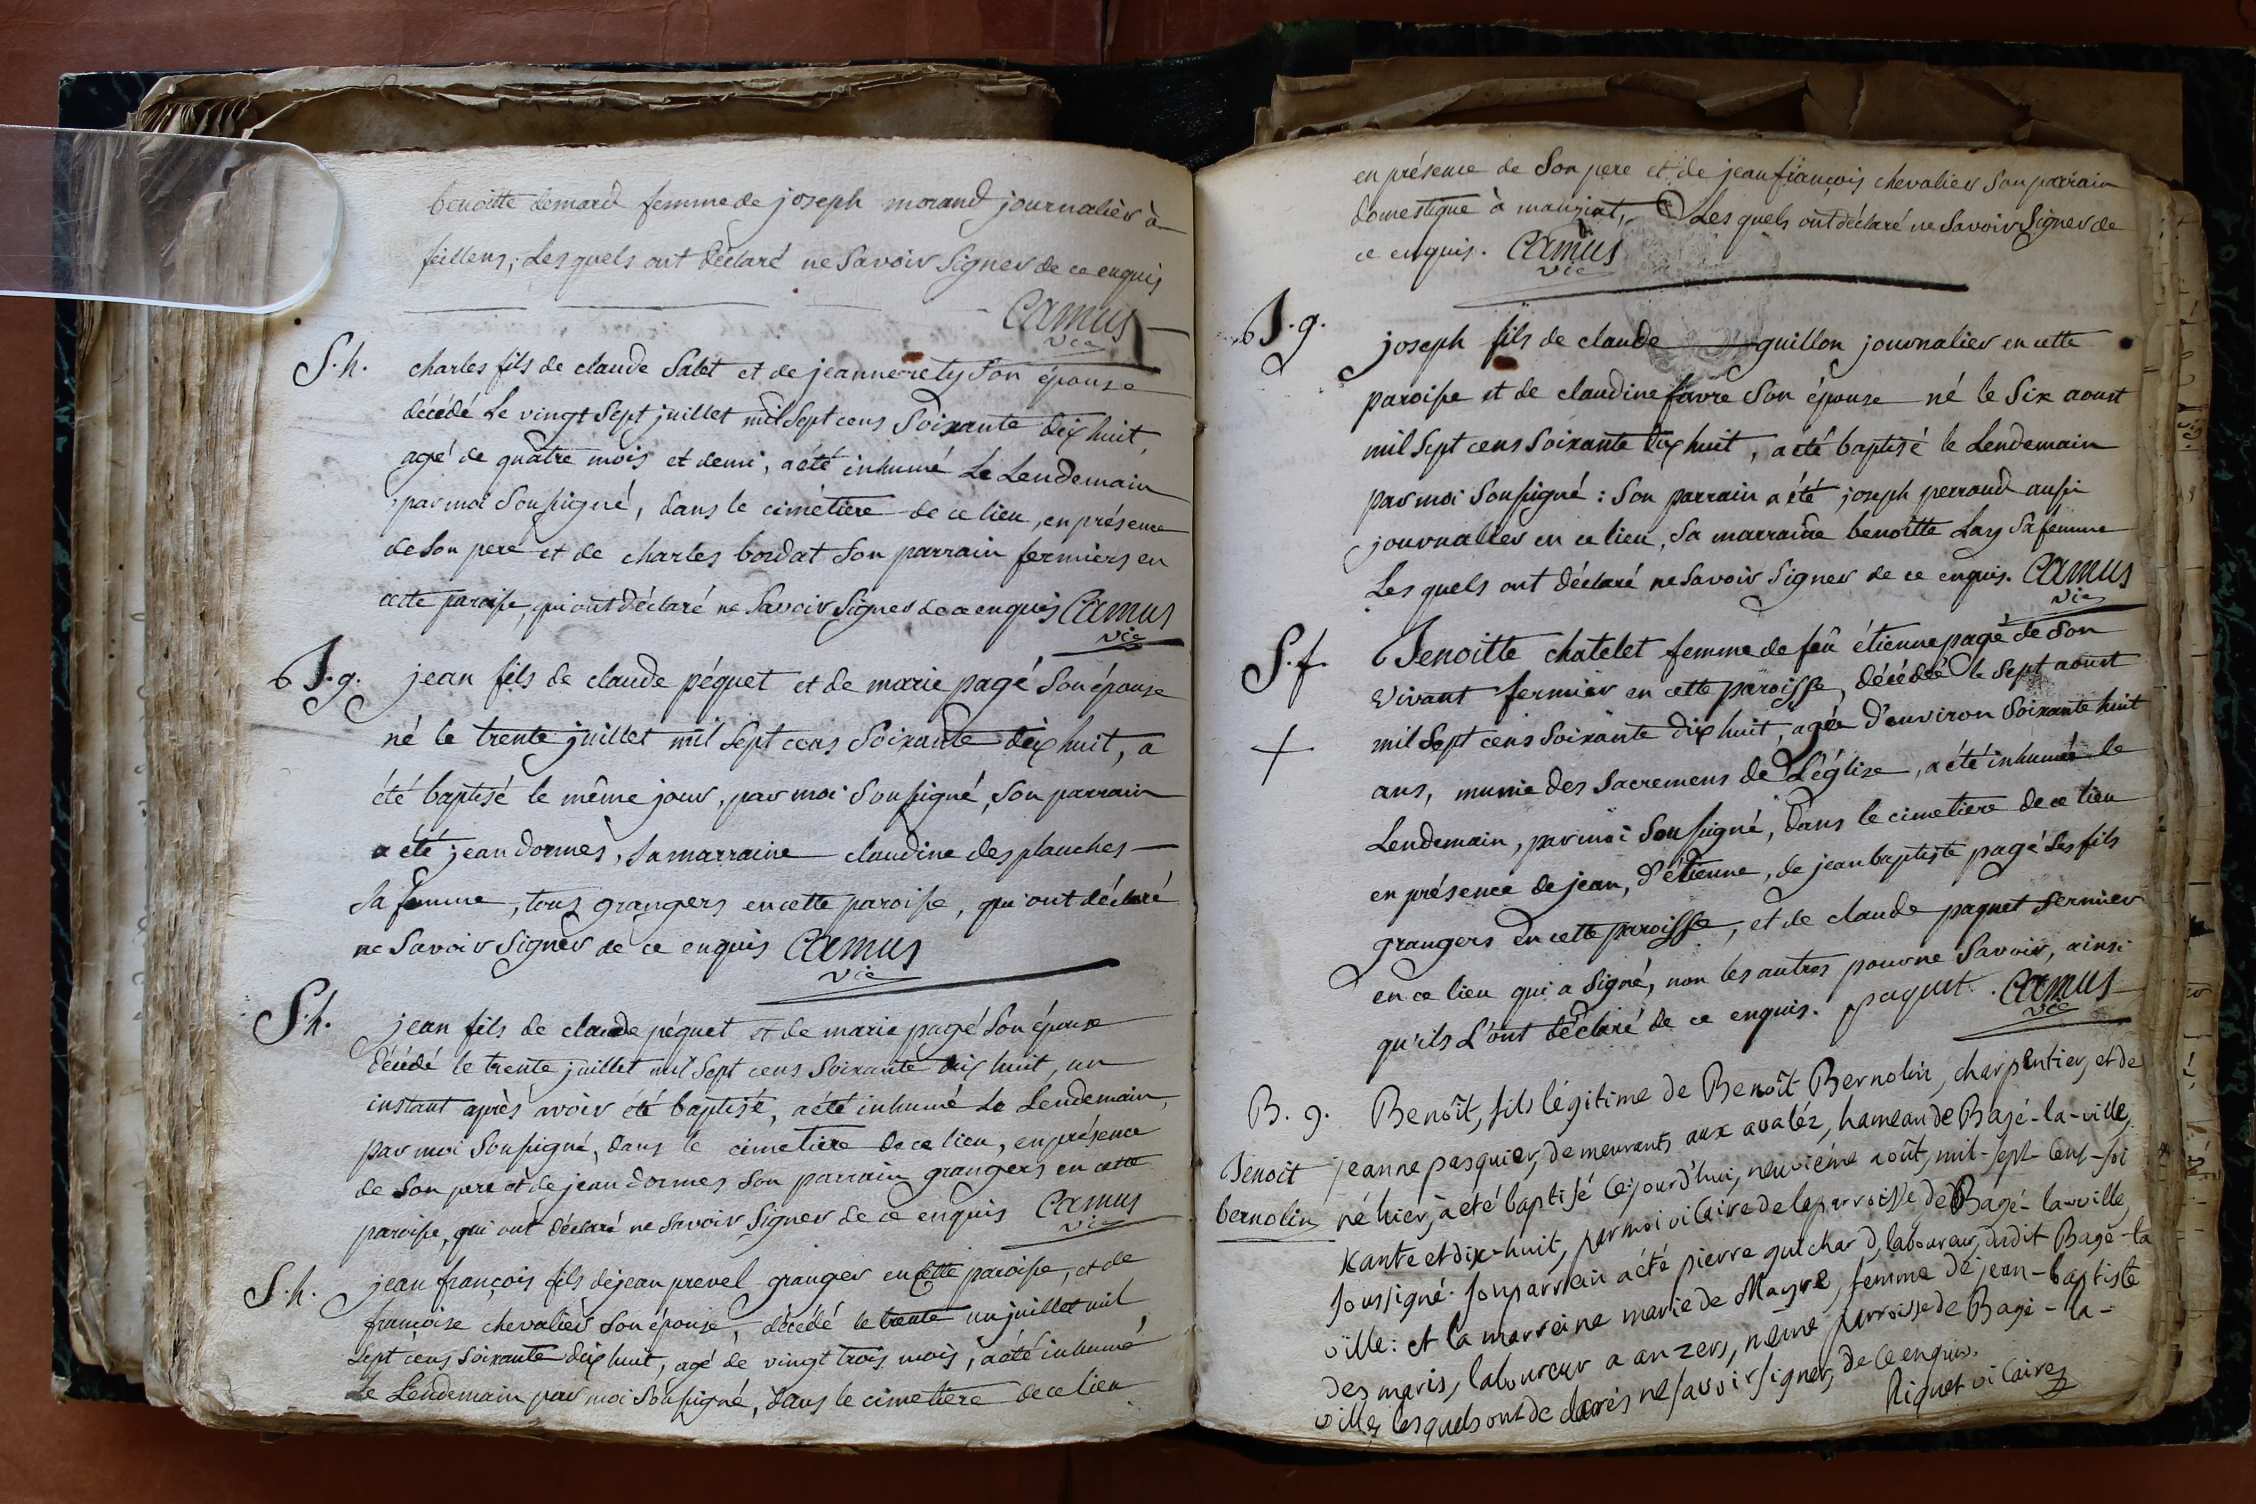 benoitte demard femme de joseph morand journalier à
feillens; Lesquels ont déclaré ne Savoir Signer de ce enquis
Camus
vic
S. h.
charles fils de claude Salet et de jeanne Son épouse
décédé Le vingt Sept juillet mil Sept cens Soixante dix huit,
agé de quatre mois et demi, a été inhumé Le Lendemain
par moi Soussigné, dans le cimétiere de ce lieu, en présence
de Son pere et de charles bordat Son parrain fermiers en
cette paroisse, qui ont déclaré ne Savoir Signer de ce enquis Camus
vic
B. g.
jean fils de claude péquet et de marie pagé Son épouse
né le trente juillet mil Sept cens Soixante dix huit, a
été baptisé le même jour, par moi Soussigné, Son parrain
a été jean dormes, Sa marraine claudine desplanches
Sa femme, tous grangers en cette paroisse, qui ont déclaré
ne Savoir Signer de ce enquis Camus
vic
S. h.
jean fils de claude péquet et de marie pagé Son épouse
décédé le trente juillet mil Sept cens Soixante dix huit, un
instant après avoir été baptisé, a été inhumé Le Lendemain,
par moi Soussigné, dans le cimetiere de ce lieu, en présence
de Son pere et de jean dormes Son parrain grangers en cette
paroisse, qui ont déclaré ne Savoir Signer de ce enquis Camus
vic
S. h.
jean françois fils de jean prevel granger en cette paroisse, et de
françoise chevalier Son épouse, décédé le trente un juillet mil
Sept cens Soixante dix huit, agé de vingt trois mois, a été inhumé
Le Lendemain par moi Soussigné, dans le cimetiere de ce lieu
en présence de Son pere et de jean françois chevalier Son parrain
domestique à manziat, Les quels ont déclaré ne Savoir Signer de
ce enquis. Camus
vic
B. g.
joseph fils de claude guillon journalier en cette
paroisse et de claudine favre Son épouse né le Six aoust
mil Sept cens Soixante dix huit, a été baptisé le Lendemain
par moi Soussigné : Son parrain a été joseph perroud aussi
journalier en ce lieu, Sa marraine benoitte Lary Sa femme
Les quels ont déclaré ne Savoir Signer de ce enquis. Camus
vic
S. f.
+
Benoitte chatelet femme de feû étienne pagé de Son
vivant fermier en cette paroisse, décédée le Sept aoust
mil Sept cens Soixante dix huit, agée d'environ Soixante huit
ans, munie des Sacremens de L'église, a été inhumée le
Lendemain, par moi Soussigné, dans le cimetiere de ce lieu
en présence de jean, d'étienne, de jean baptiste pagé Ses fils
grangers en cette paroisse, et de claude paquet fermier
en ce lieu qui a Signé, non les autres pour ne Savoir, ainsi
qu'ils L'ont déclaré de ce enquis. paquet. Camus
vic
B. g.
Benoit
bernolin
Benoît, fils légitime de Benoît Bernolin, charpentier, et de
jeanne pasquier, demeurants aux avaléz, hameau de Bagé-la-ville,
né hier, a été baptisé ce jourd'hui, neuviéme août, mil-sept-cent-soi
xante et dix-huit, par moi vicaire de la parroisse de Bagé-la-ville,
soussigné. son parrain a été pierre guichard, laboureur, dudit Bagé-la
ville: et la marreine marie de Mayre, femme de jean-baptiste
des maris, laboureur a anzers, même parroisse de Bagé-la-
ville, lesquels ont declarés ne savoir signer, de ce enquis.
Riquet vicaire